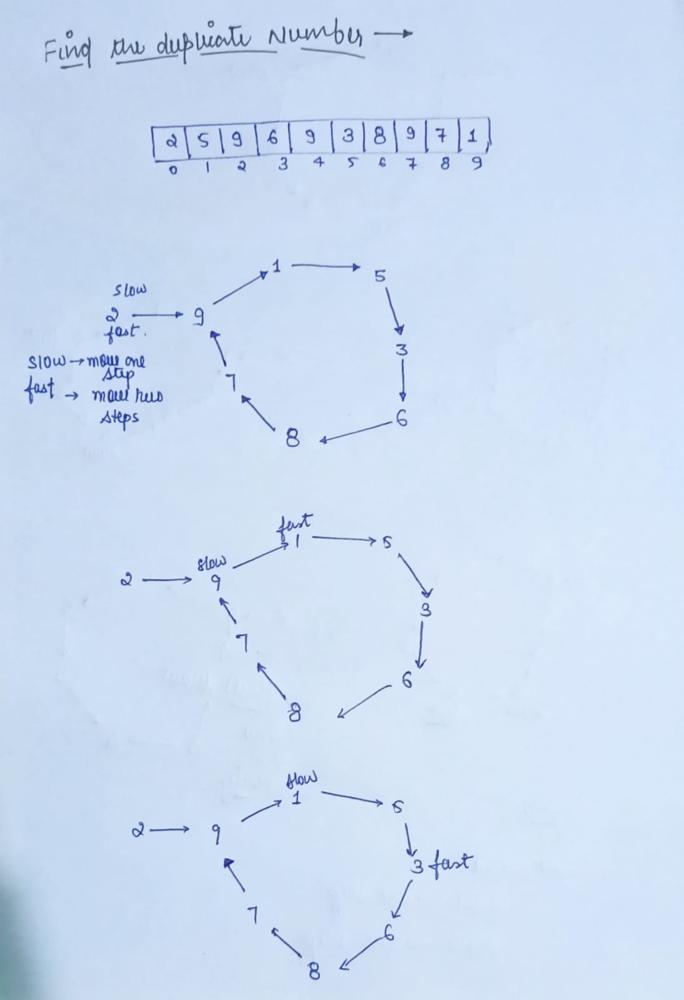 Find the duplicate Number →
2 5 9 6 9 3 8 9 7 1
0 1 2 3 4 5 6 7 8 9
1 → 5
slow
2 → 9
fast.
3
slow → move one
step
7
fast → move two
steps
6
8
fast
1 → 5
slow
2 → 9
3
7
6
8
slow
1 → 5
2 → 9
3 fast
7
6
8